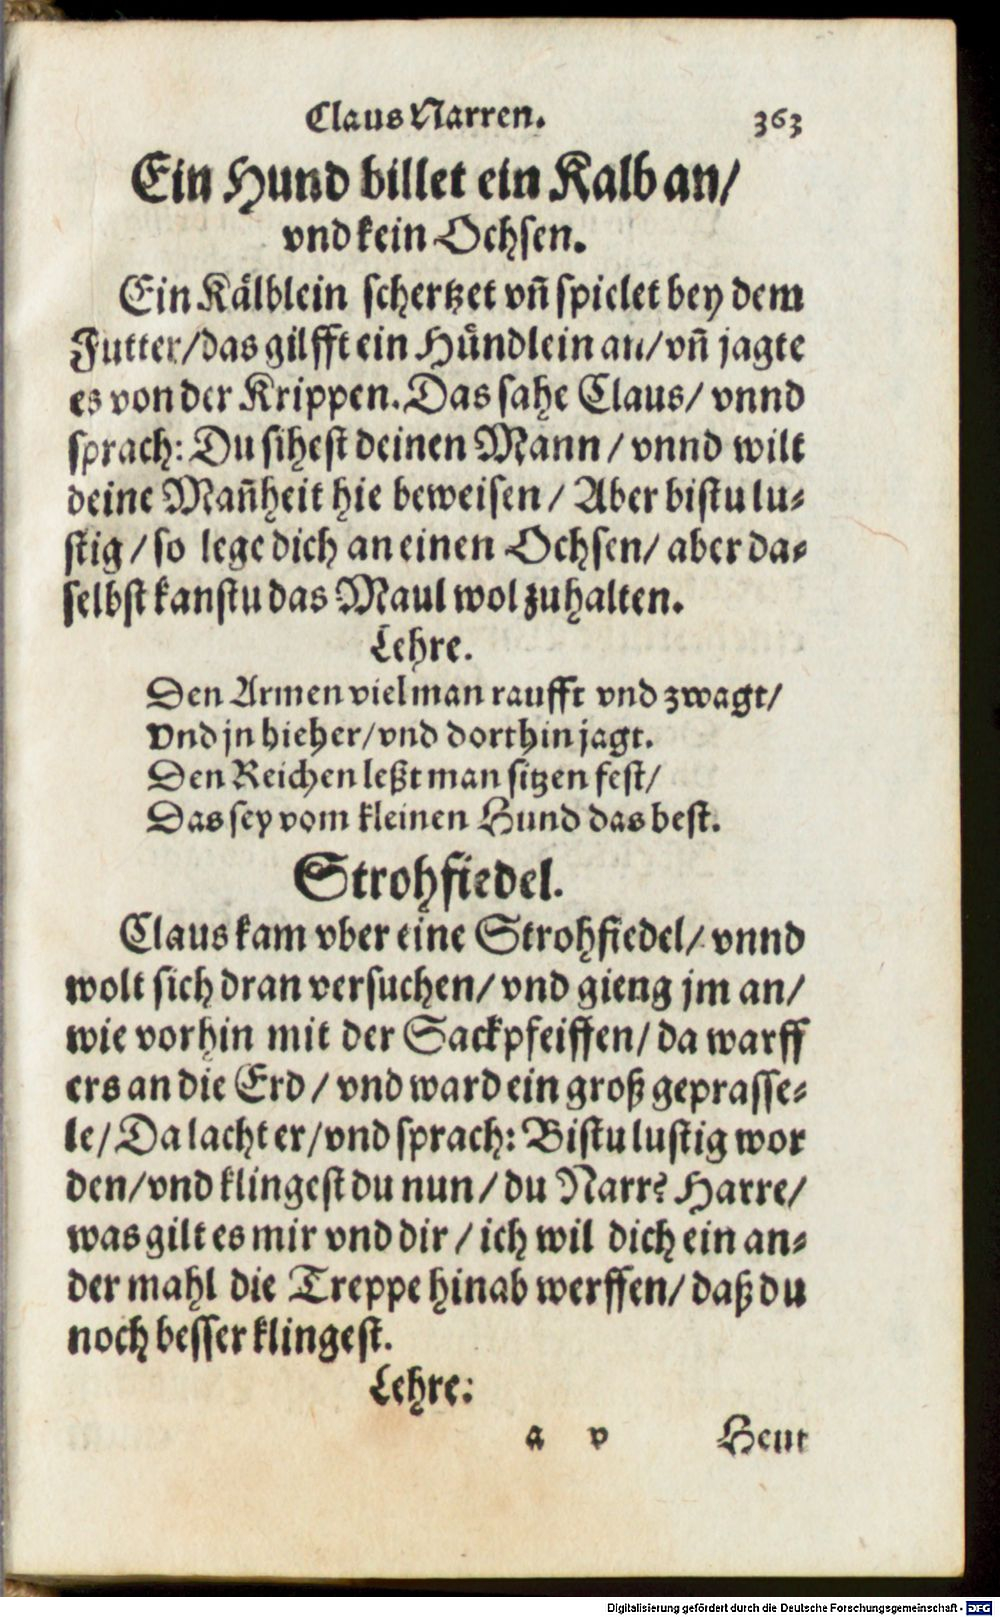 Claus Narren. 363
Ein Hund billet ein Kalb an/
vnd kein Ochsen.
Ein Kälblein schertzet vñ spielet bey dem
Futter/das gilfft ein Hündlein an/vñ jagte
es von der Krippen. Das sahe Claus/ vnnd
sprach: Du sihest deinen Mann / vnnd wilt
deine Mañheit hie beweisen / Aber bistu lu-
stig / so lege dich an einen Ochsen/ aber da-
selbst kanstu das Maul wol zuhalten.
Lehre.
Den Armen viel man raufft vnd zwagt/
Vnd jn hieher/vnd dorthin jagt.
Den Reichen leßt man sitzen fest/
Das sey vom kleinen Hund das best.
Strohfiedel.
Claus kam vber eine Strohfiedel/ vnnd
wolt sich dran versuchen/ vnd gieng jm an/
wie vorhin mit der Sackpfeiffen/ da warff
ers an die Erd / vnd ward ein groß geprasse-
le/ Da lacht er/vnd sprach: Bistu lustig wor
den/vnd klingest du nun / du Narr? Harre/
was gilt es mir vnd dir / ich wil dich ein an-
der mahl die Treppe hinab werffen/ daß du
noch besser klingest.
Lehre:
a v Heut
Digitalisierung gefördert durch die Deutsche Forschungsgemeinschaft - DFG